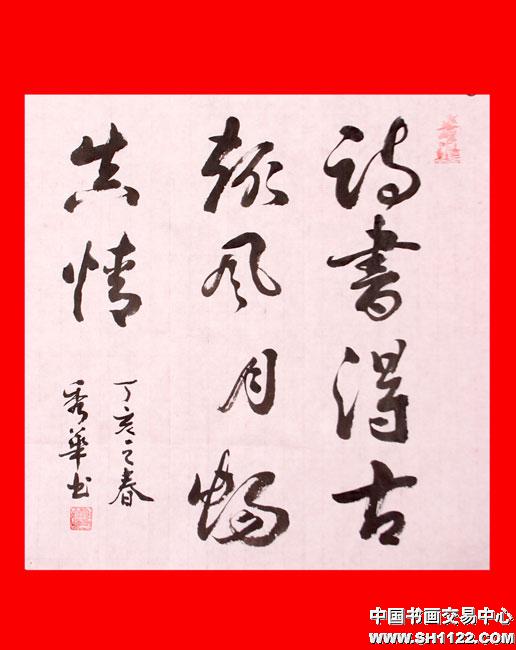 詩書得古
趣風月暢
真情
丁亥之春
秀華书
中国书画交易中心
www.SH1122.com